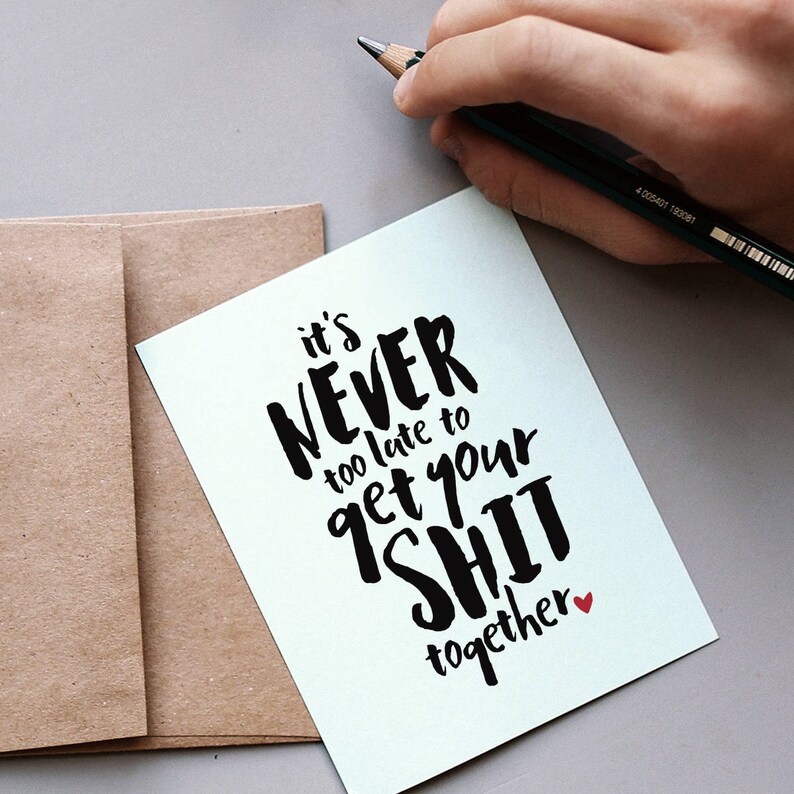 4 005401 193081
it's
NEVER
too late to
get your
SHIT
together